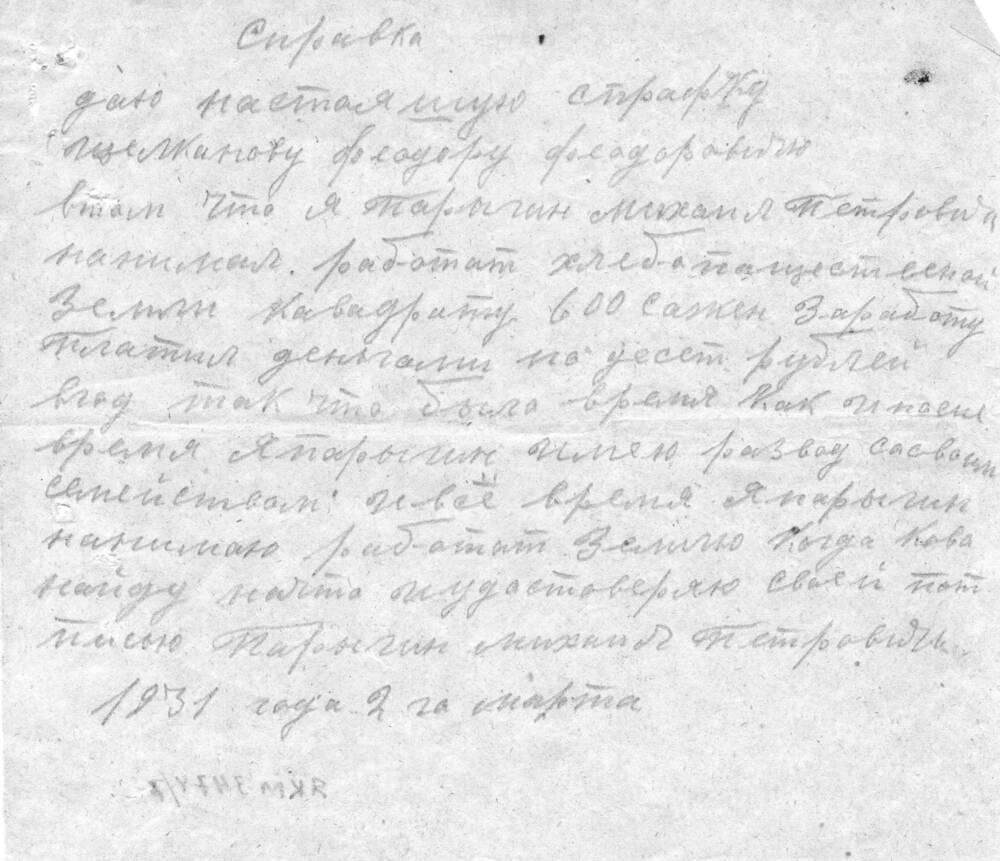 Справка
даю настоящую страфку
щелканову феодору феодоровичю
втом что я Парыгин михаил Петрович
нанимал работат хлебопашестесной
Земли кавадрату 600 сажен Заработу
Платил деньгами по десет рублей
вгод так что было время как и после
время Япарыгин имею развод сосвоим
семейством и всё время Япарыгин
нанимаю работат Землю когда кова
найду начто иудостоверяю своей пот
писью Парыгин михаил Петрович
1931 года 2 го марта
ЯКМ 3474/7